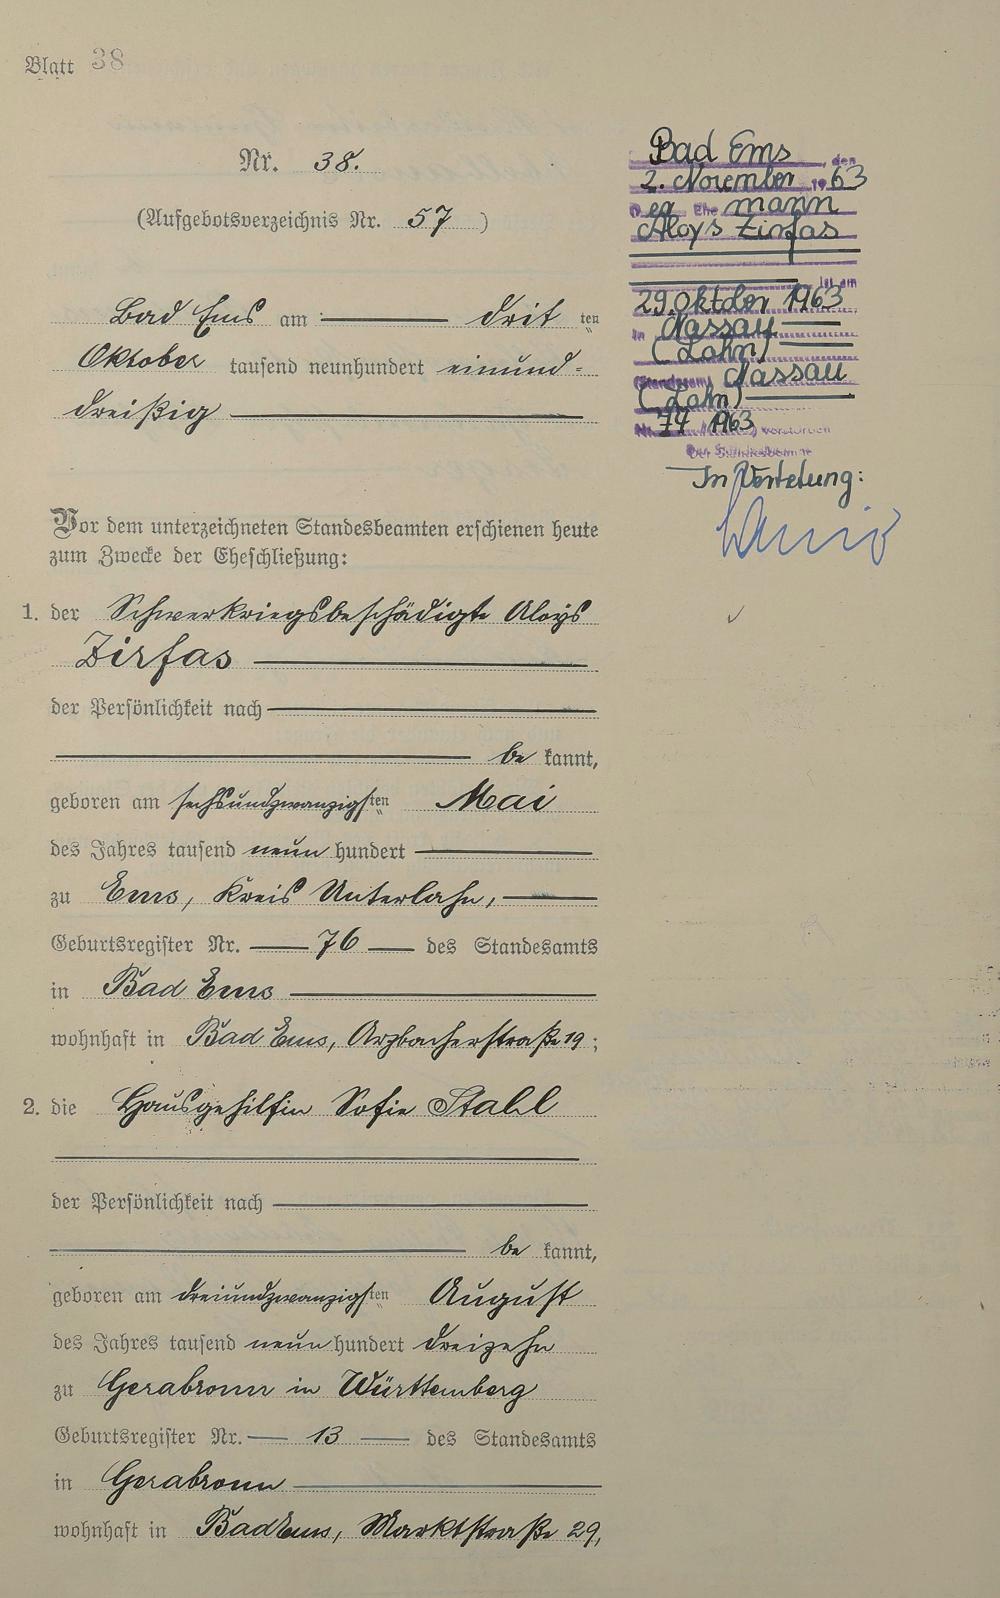 Blatt 38
Nr. 38.
(Aufgebotsverzeichnis Nr. 57)
Bad Ems am dritten
Oktober tausend neunhundert einund-
dreißig
Vor dem unterzeichneten Standesbeamten erschienen heute
zum Zwecke der Eheschließung:
1. der Schwerkriegsbeschädigte Aloys
Zirfas
der Persönlichkeit nach
be kannt,
geboren am sechsundzwanzigsten Mai
des Jahres tausend neun hundert
zu Ems, Kreis Unterlahn,
Geburtsregister Nr. 76 des Standesamts
in Bad Ems
wohnhaft in Bad Ems, Arzbacherstraße 19;
2. die Hausgehilfin Sofie Stahl
der Persönlichkeit nach
be kannt,
geboren am dreiundzwanzigsten August
des Jahres tausend neun hundert dreizehn
zu Gerabronn in Württemberg
Geburtsregister Nr. 13 des Standesamts
in Gerabronn
wohnhaft in Bad Ems, Marktstraße 29,
Bad Ems, den
2. November 1963
Der Ehemann
Aloys Zirfas
ist am
29. Oktober 1963
in Nassau
(Lahn)
(Standesamt Nassau
(Lahn)
Nr. 74/1963) verstorben
Der Standesbeamte
In Vertretung: